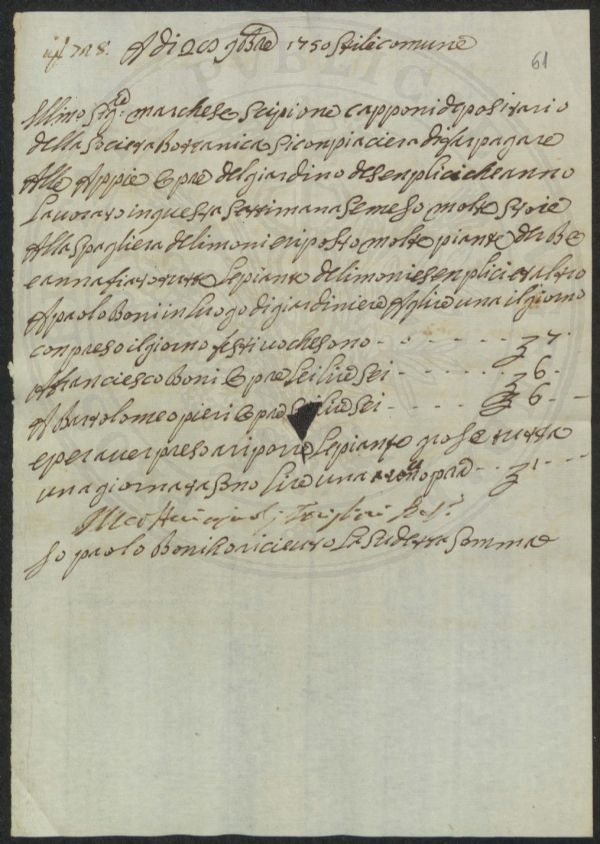 N.° 8. A di 2[?] 9bre 1750 Stile comune
61
Illmo Sigre marchese Scipione capponi depositario
della Societa Bottanica Si conpiaciera di far pagare
Alle Appie Opre del giardino de Senplici che anno
Lavorato in questa Settimana Se meso molte Stoie
Alla Spagliera de limoni e riposto molte piante del
e annafiato tutte Le piante de limoni e Senplici et altro
A paolo Boni in luogo di giardiniere A Lire una il giorno
conpreso il giorno festivo che sono - - - - - 7
A franciesco Boni Opre Sei lire Sei - - - - - 6
A Bartolomeo pieri Opre Sei lire Sei - - - - 6 -
e per aver preso a riporre Le piante grose tutta
una giornata Sono lire una opre - - - 1 - -
Io paolo Boni o ricieuto La Sudetta Somma
PVBLIC